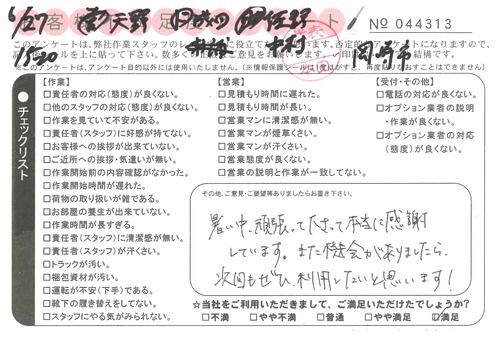 6/27
天野
№ 044313
1520
岡崎市
このアンケートは、弊社作業スタッフの
チェックリスト
【作業】
□責任者の対応(態度)が良くない。
□他のスタッフの対応(態度)が良くない。
□作業を見ていて不安がある。
□責任者(スタッフ)に好感が持てない。
□お客様への挨拶が出来ていない。
□ご近所への挨拶・気遣いが無い。
□作業開始前の内容確認がなかった。
□作業開始時間が遅れた。
□荷物の取り扱いが雑である。
□お部屋の養生が出来ていない。
□作業時間が長すぎる。
□責任者(スタッフ)に清潔感が無い。
□責任者(スタッフ)が汗くさい。
□トラックが汚い。
□梱包資材が汚い。
□運転が不安(下手)である。
□靴下の履き替えをしてない。
□スタッフにやる気がみられない。
【営業】
□見積もり時間に遅れた。
□見積もり時間が長い。
□営業マンに清潔感が無い。
□営業マンが煙草くさい。
□営業マンが汗くさい。
□営業態度が良くない。
□営業の説明と作業が一致してない。
【受付・その他】
□電話の対応が良くない。
□オプション業者の説明
・作業が良くない。
□オプション業者の対応
(態度)が良くない。
その他、ご意見・ご要望等ありましたらお書き下さい。
暑い中、頑張って下さって本当に感謝
しています。また機会がありましたら、
次回もぜひ、利用したいと思います!
☆当社をご利用いただきまして、ご満足いただけたでしょうか?
□不満 □やや不満 □普通 □やや満足 ☑満足